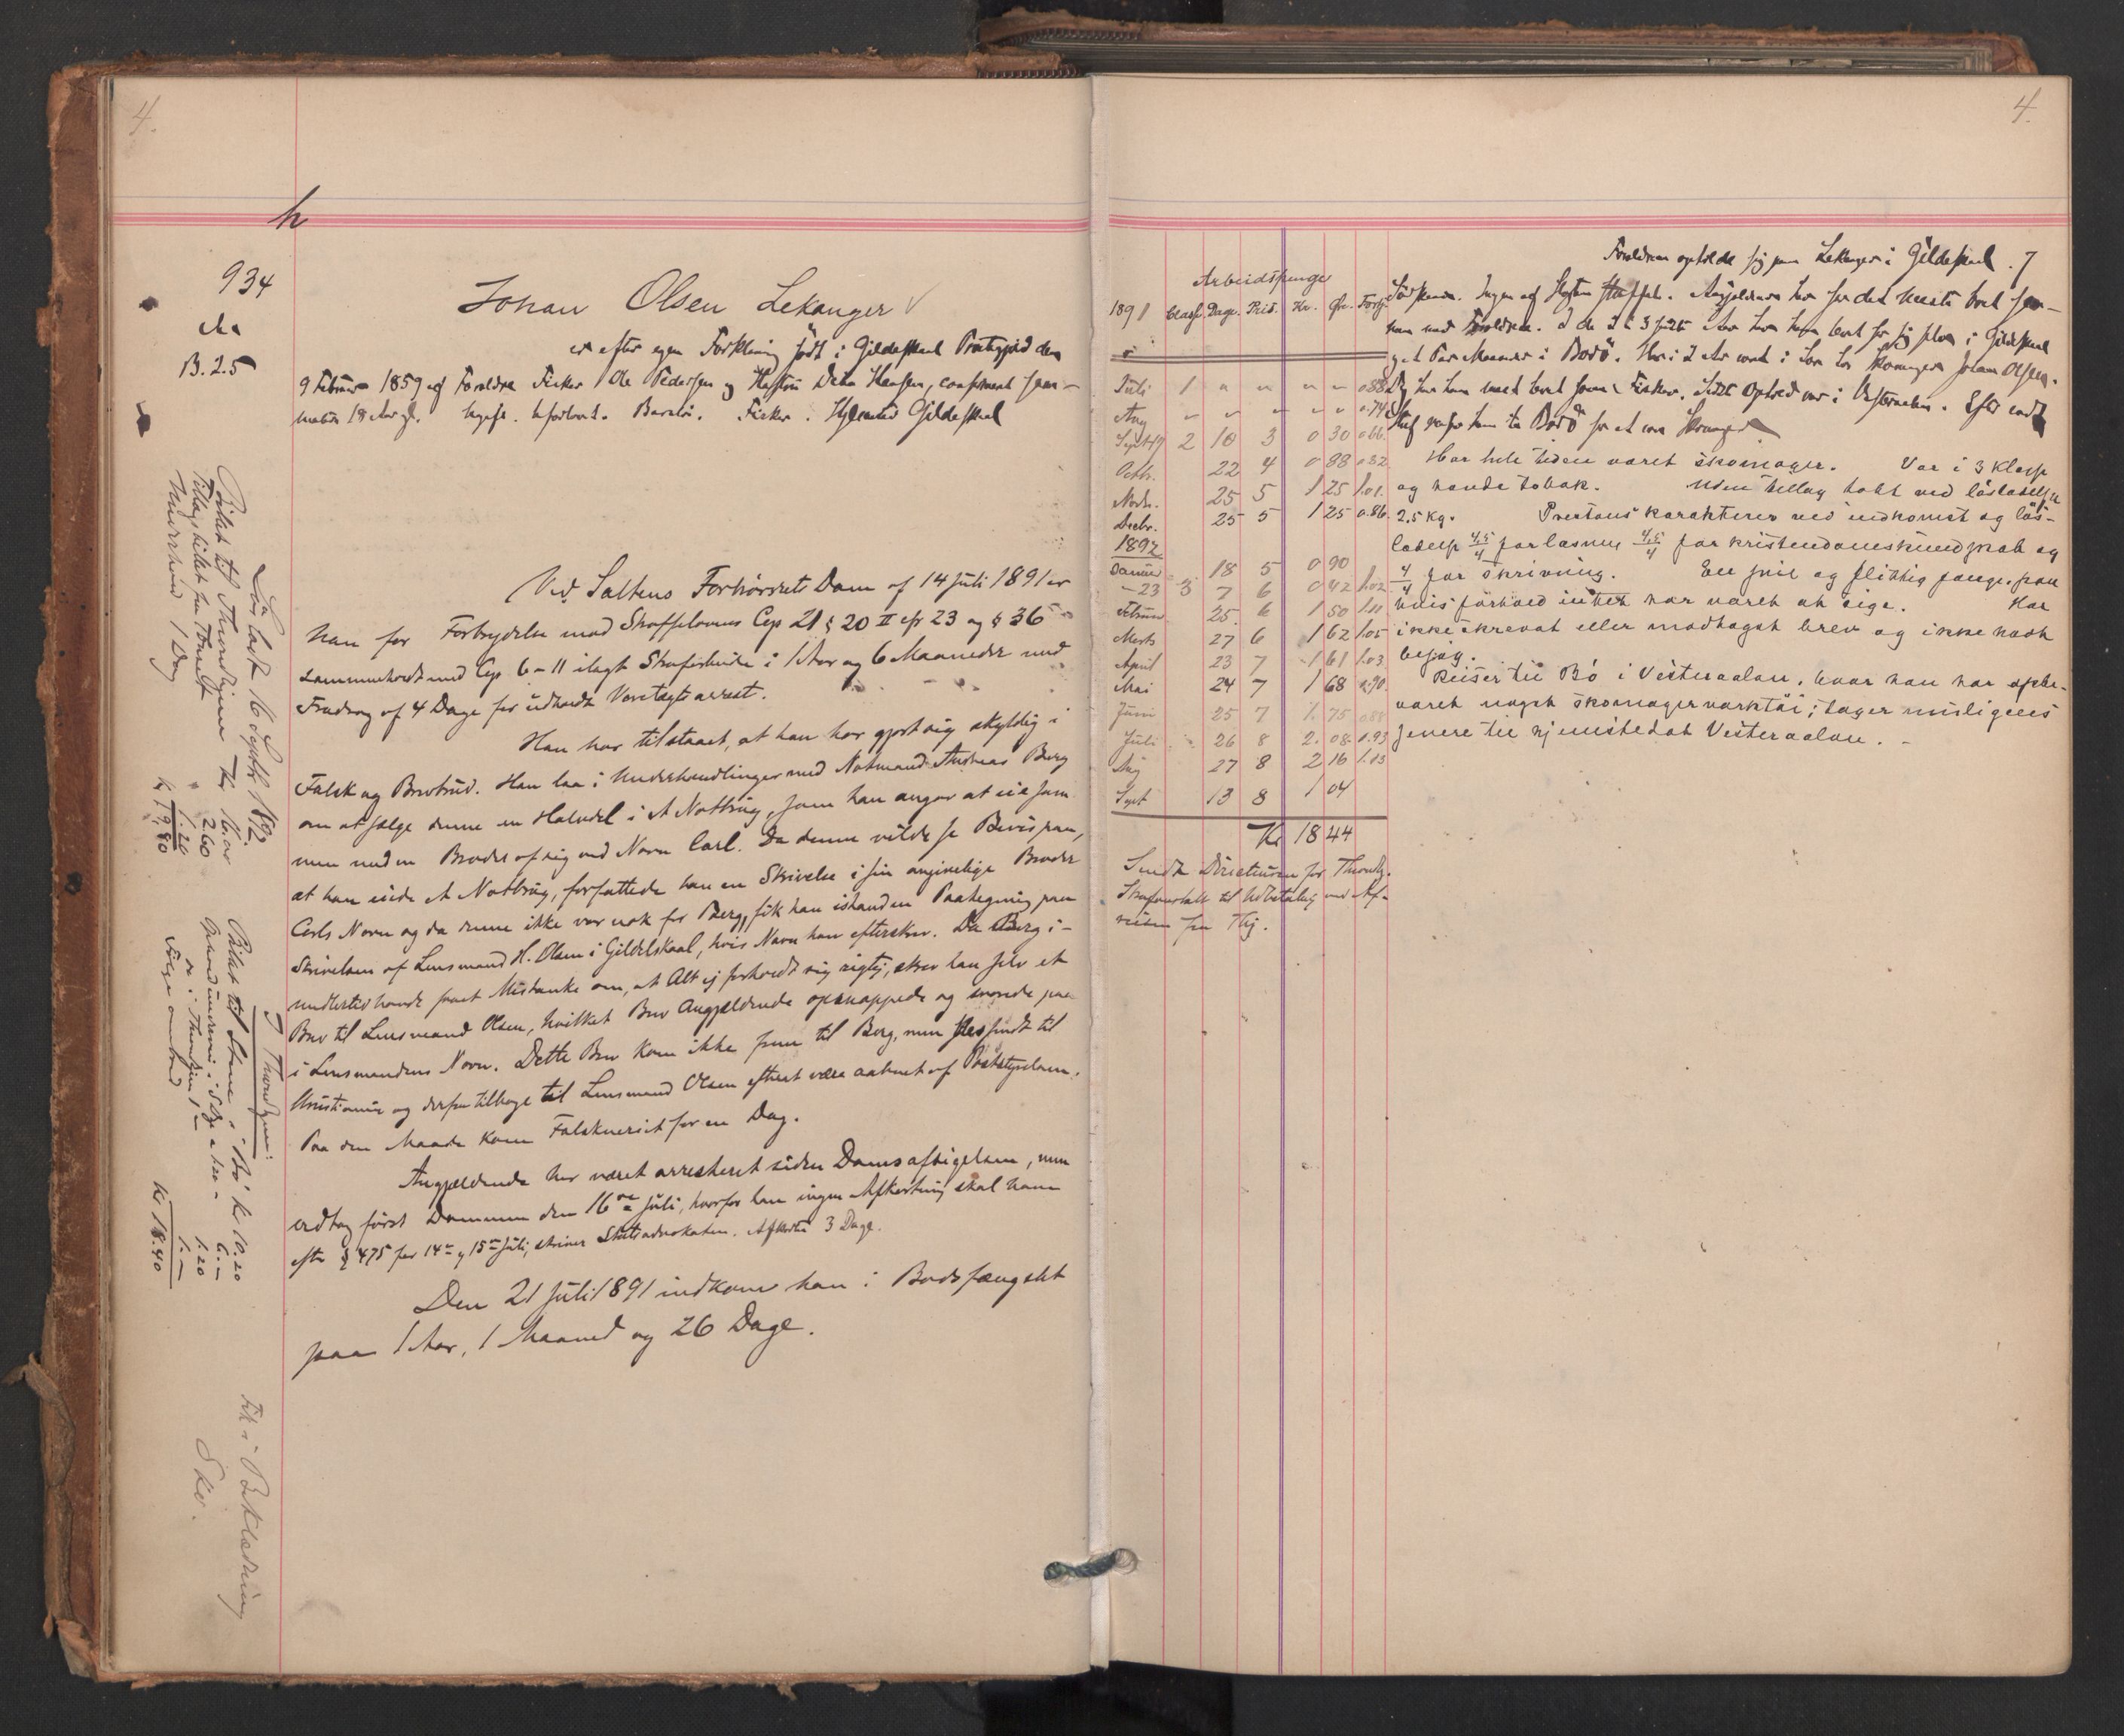 4.
h
934
B. 2.5
Johan Olsen Lekanger
er efter egen Forklaring født i Gildeskaal Prestegjeld den
9 Februar 1859 af Forældre Fisker Ole Pedersen og Hustru Hansen, confirmeret sam-
mesteds 18 Aar gl. Ugift. Barnløs. Fisker. Hjemsted Gildeskaal
Ved Saltens Forhørsrets Dom af 14 Juli 1891 er
han for Forbrydelse mod Straffelovens Cap 21 § 20 II cfr 23 og § 36
sammenholdt med Cap. 6-11 ilagt Strafarbeide i 1 Aar og 6 Maaneder med
Fradrag af 4 Dage for udholdt Varetægtsarrest.
Han har tilstaaet, at han har gjort sig skyldig i
Falsk og Brevbrud. Han laa i Underhandlinger med Notmand Andreas Berg
om at sælge denne en Halvdel i et Notbrug, som han angav at eie sam-
men med en Broder af sig ved Navn Carl. Da denne vilde se Bevis paa,
at han eiede et Notbrug, forfattede han en Skrivelse i sin angivelige Broder
Carls Navn og da denne ikke var nok for Berg, fik han istand en Paategning paa
Skrivelsen af Lensmand H. Olsen i Gildeskaal, hvis Navn han efterskrev. Da Berg i-
midlertid havde faaet Mistanke om, at Alt ej forholdt sig rigtig, skrev han selv et
Brev til Lensmand Olsen, hvilket Brev Angjældende opsnappede og svarede paa
i Lensmandens Navn. Dette Brev kom ikke frem til Berg, men sendt til
Kristiania og derfra tilbage til Lensmand Olsen efterat være aabnet af Poststyrelsen.
Paa den Maade kom Falskneriet for en Dag.
Angjældende har været arresteret siden Domsafsigelsen, men
vedtog først Dommen den 16de Juli, hvorfor han ingen Afkortning skal have
efter § 475 for 14de og 15de Juli, skriver Statsadvokaten. Afkortes 3 Dage.
Den 21 Juli 1891 indkom han i Bodsfængslet
paa 1 Aar, 1 Maaned og 26 Dage.
Løsladt 16 Septbr 1892.
Billet til Throndhjem Kr 16.00
2.60
Underhold 1 Dag 1.20
Kr 19.80
I Throndhjem:
Billet til Stene i Bø Kr 10.20
Underhold i 5 Dge a 1.20 = 6.-
do i Throndhjem 1 - 1.20
1.-
Kr 18.40
Fik i Beklædning
Sko.
4.
Arbeidspenge
1891 Classe. Dage. Pris. Kr. Ør. Fortj.
Juli 1 " " " " 0.88
Aug " " " " " 0.74
Septb 19 2 10 3 0 30 0.66
Octb. 22 4 0 88 0.82
Novbr. 25 5 1 25 1.01.
Decbr. 25 5 1 25 0.86.
1892
Januar 18 5 0 90
- 23 3 7 6 0 42 1.02
Februar 25 6 1 50 1.11
Marts 27 6 1 62 1.05
April 23 7 1 61 1.03
Mai 24 7 1 68 0.90.
Juni 25 7 1. 75 0.88
Juli 26 8 2. 08 0.93
Aug 27 8 2 16 1.03
Sept 13 8 1 04
Kr 18 44
Sendt Direktøren for Throndhj.
Strafanstalt til Udbetaling ved Af-
reisen fra Thj.
Forældrene opholde sig paa Lekanger i Gildeskaal. 7
Sødskende. Ingen af Slægten straffet. Angjældende har for det meste levet sam-
men med Forældrene. I de 2 à 3 sidste Aar har han levet for sig selv i Gildeskaal
og et Par Maaneder i Bodø. Har i 2 Aar været i Lære hos Skomager Johan Olsen.
har han mest levet som Fisker. Sidste Ophold var i Vesteraalen. Efter endt
Straf reiser han til Bodø for at være Skomager.
Har hele tiden været skomager. Var i 3 klasse
og havde tobak. Uden tillæg tabt ved løsladelsen
2.5 Kg. Prestens karakterer ved indkomst og løs-
ladelse 4,5/4 for læsning 4,5/4 for kristendomskundskab og
4/4 for skrivning. En snil og flittig fange, paa
hvis forhold intet har været at sige. Har
ikke skrevet eller modtaget brev og ikke havt
besøg.
Reiser til Bø i Vesteraalen, hvor han har opbe-
varet noget skomagerværktøi; tager muligens
senere til hjemstedet Vesteraalen. -